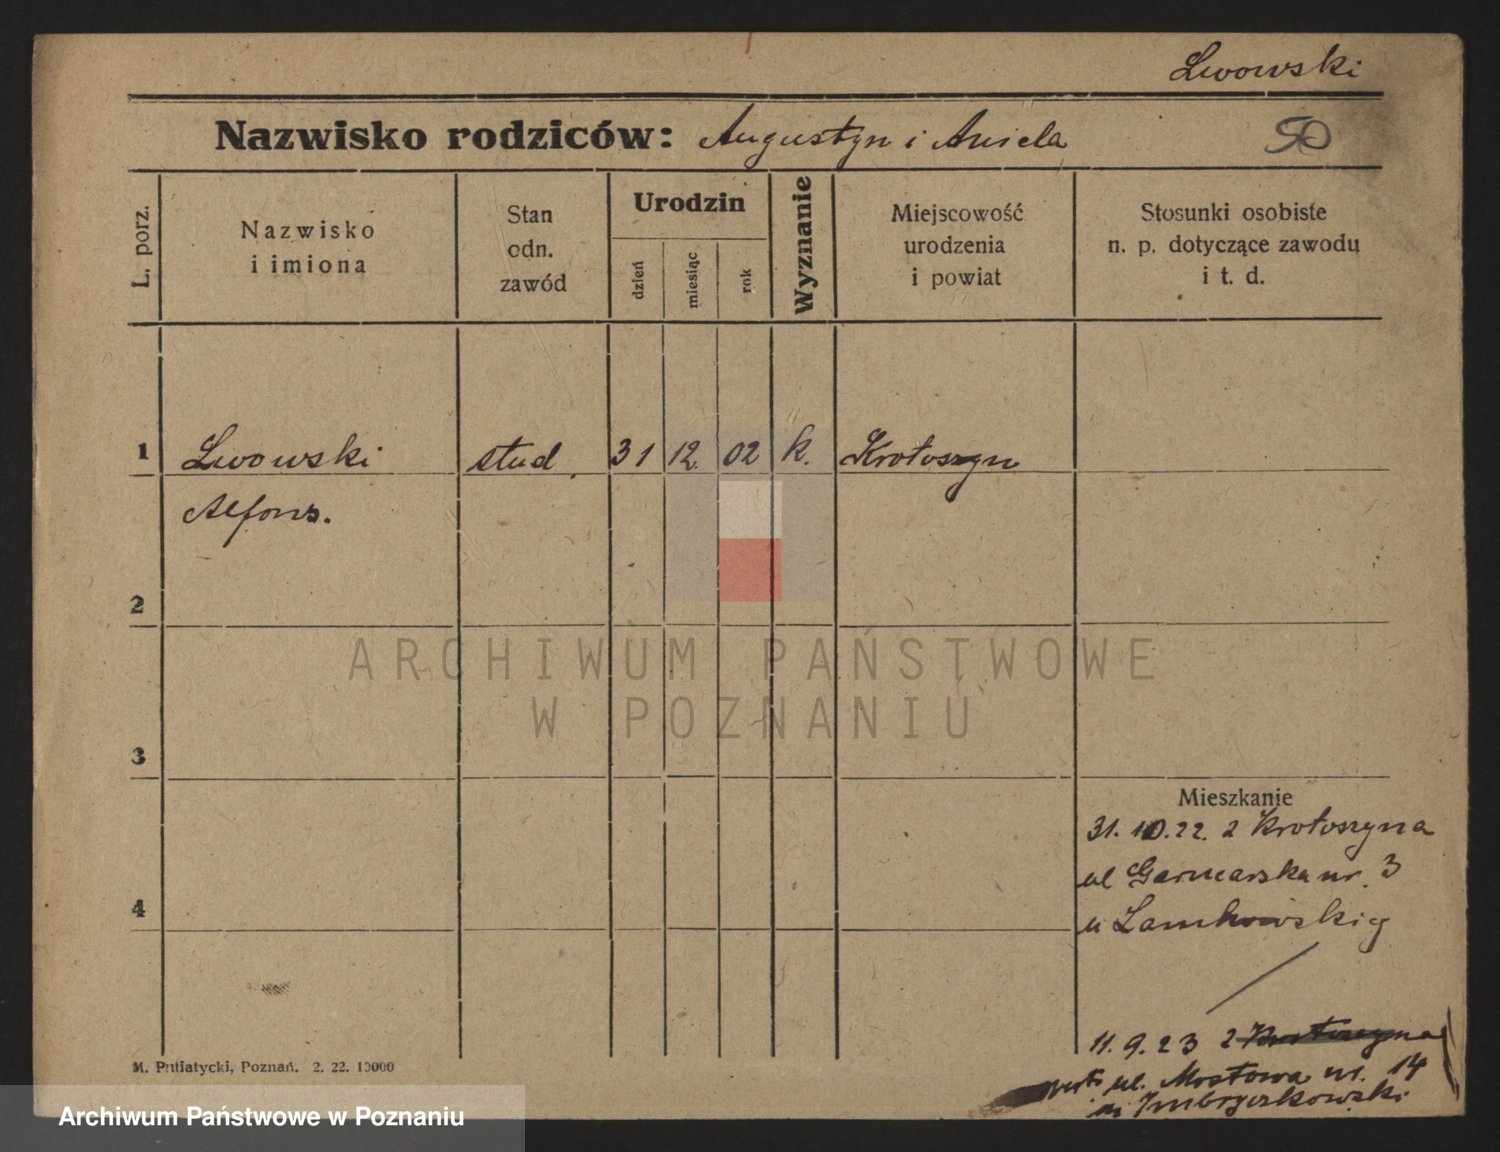 Lwowski
Nazwisko rodziców: Augustyn i Aniela
50
L. porz.
Nazwisko
i imiona
Stan
odn.
zawód
Urodzin
dzień
miesiąc
rok
Wyznanie
Miejscowość
urodzenia
i powiat
Stosunki osobiste
n. p. dotyczące zawodu
i t. d.
1 Lwowski stud 31 12. 02 k. Krotoszyn
Alfons.
2
ARCHIWUM PAŃSTWOWE
W POZNANIU
3
Mieszkanie
31. 10. 22. z Krotoszyna
ul Garncarska nr. 3
4
u
11. 9. 23 z Krotoszyna
ul. Mostowa nr. 14
M. Putiatycki, Poznań. 2. 22. 10000
Archiwum Państwowe w Poznaniu